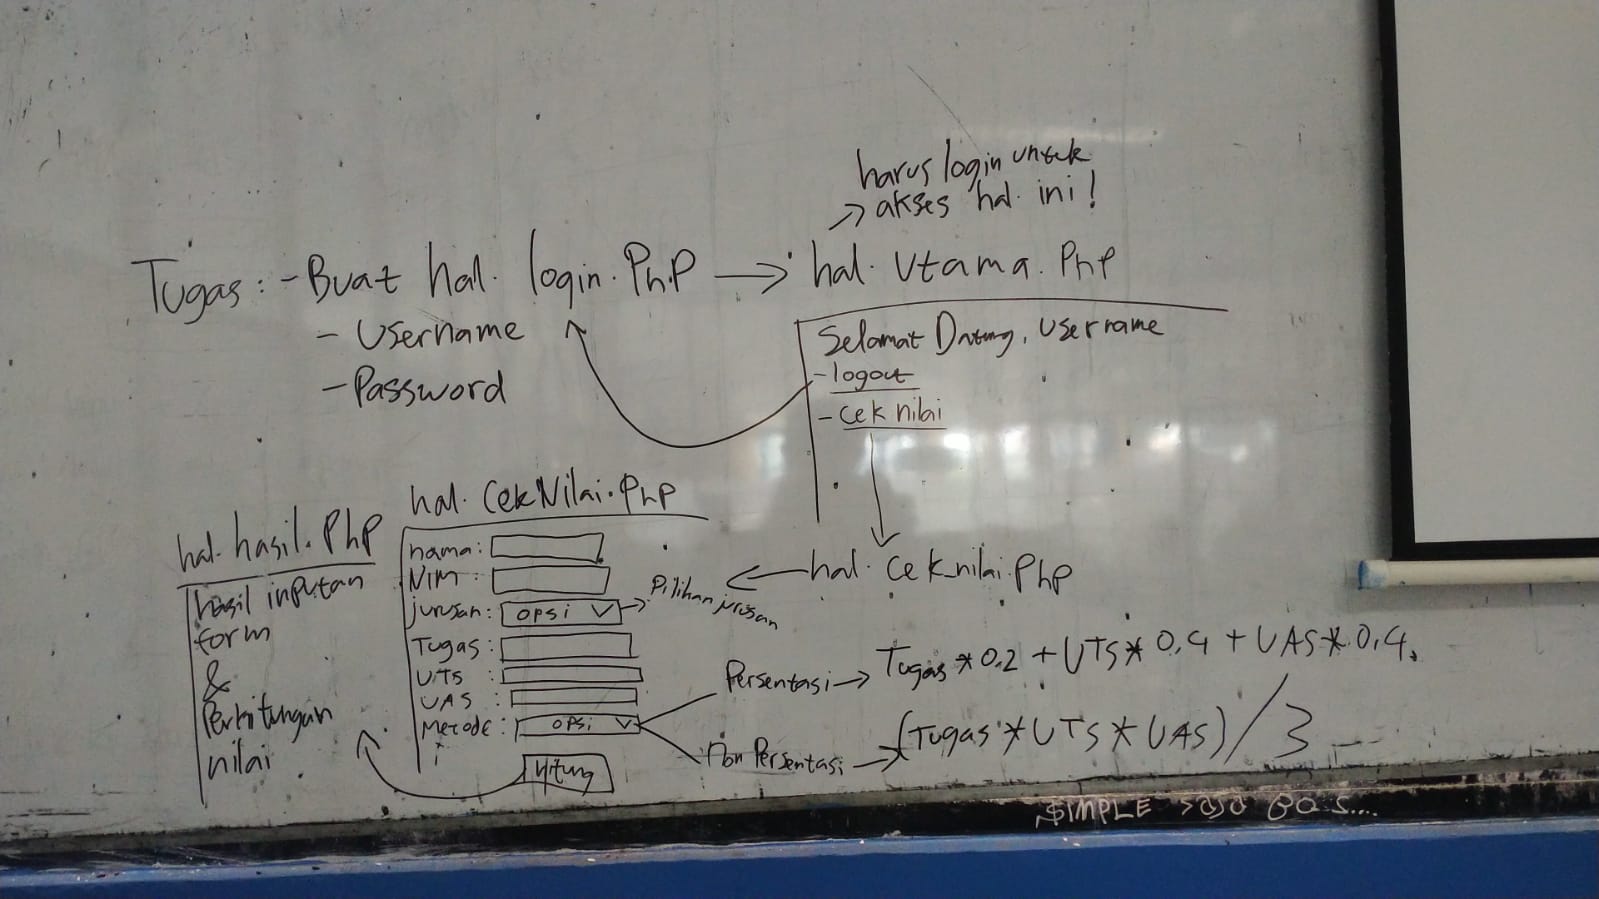 harus login untuk
→ akses hal. ini!
Tugas: - Buat hal. login.PhP → hal. Utama.PhP
- Username
- Password
Selamat Datang, Username
- logout
- cek nilai
hal. cek_nilai.PhP
hal. CekNilai.PhP
nama:
NIM:
jurusan: opsi → Pilihan jurusan
Tugas:
UTS:
UAS:
Metode: opsi
Hitung
Persentasi → Tugas * 0.2 + UTS * 0,4 + UAS * 0,4.
Non Persentasi → (Tugas * UTS * UAS) / 3
hal. hasil.PhP
hasil inputan
form
&
Perhitungan
nilai
SIMPLE